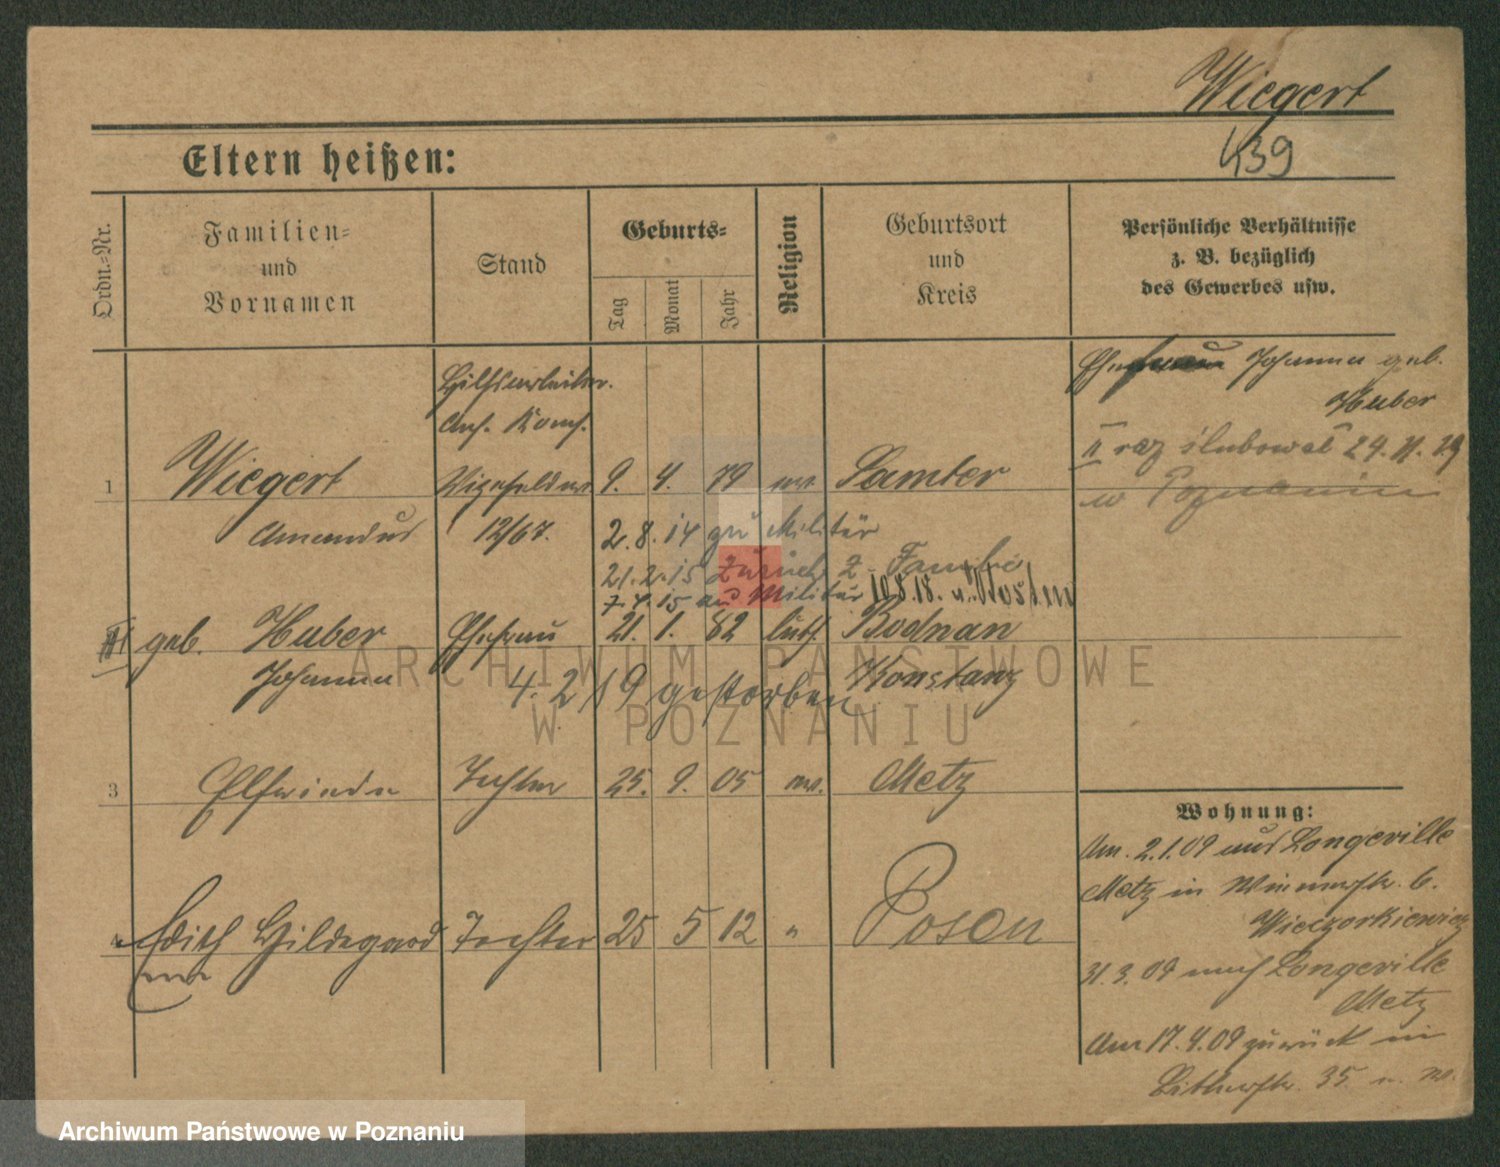 Wiegert
439
Eltern heißen:
Ordn.=Nr.
Familien=
und
Vornamen
Stand
Geburts=
Tag
Monat
Jahr
Religion
Geburtsort
und
Kreis
Persönliche Verhältnisse
z. B. bezüglich
des Gewerbes usw.
Ehefrau Johanna geb.
Huber
II raz ślubował 24.11.19
w Poznaniu
Hilfsarbeiter.
Ans. Kom.
1 Wiegert Vizefeldw. 9. 4. 79 ev. Samter
Amandus 12/67.
2.8.14 zu Militär
21.2.15 zurück z. Familie
7.4.15 zu Militär 10.8.18. v.
geb. Huber Ehefrau 21. 1. 82 luth. Bodnan
Johanna Konstanz
4. 2 19 gestorben
3 Elfriede Tochter 25. 9. 05 ev. Metz
4 Edith Hildegard Tochter 25 5 12 " Posen
ev
Wohnung:
Am. 2.1.09 aus Longeville
Metz in 6.
Wieczorkiewicz
31.3.09 nach Longeville
Metz
Am 17.4.09 zurück in
35
ARCHIWUM PAŃSTWOWE
W POZNANIU
Archiwum Państwowe w Poznaniu